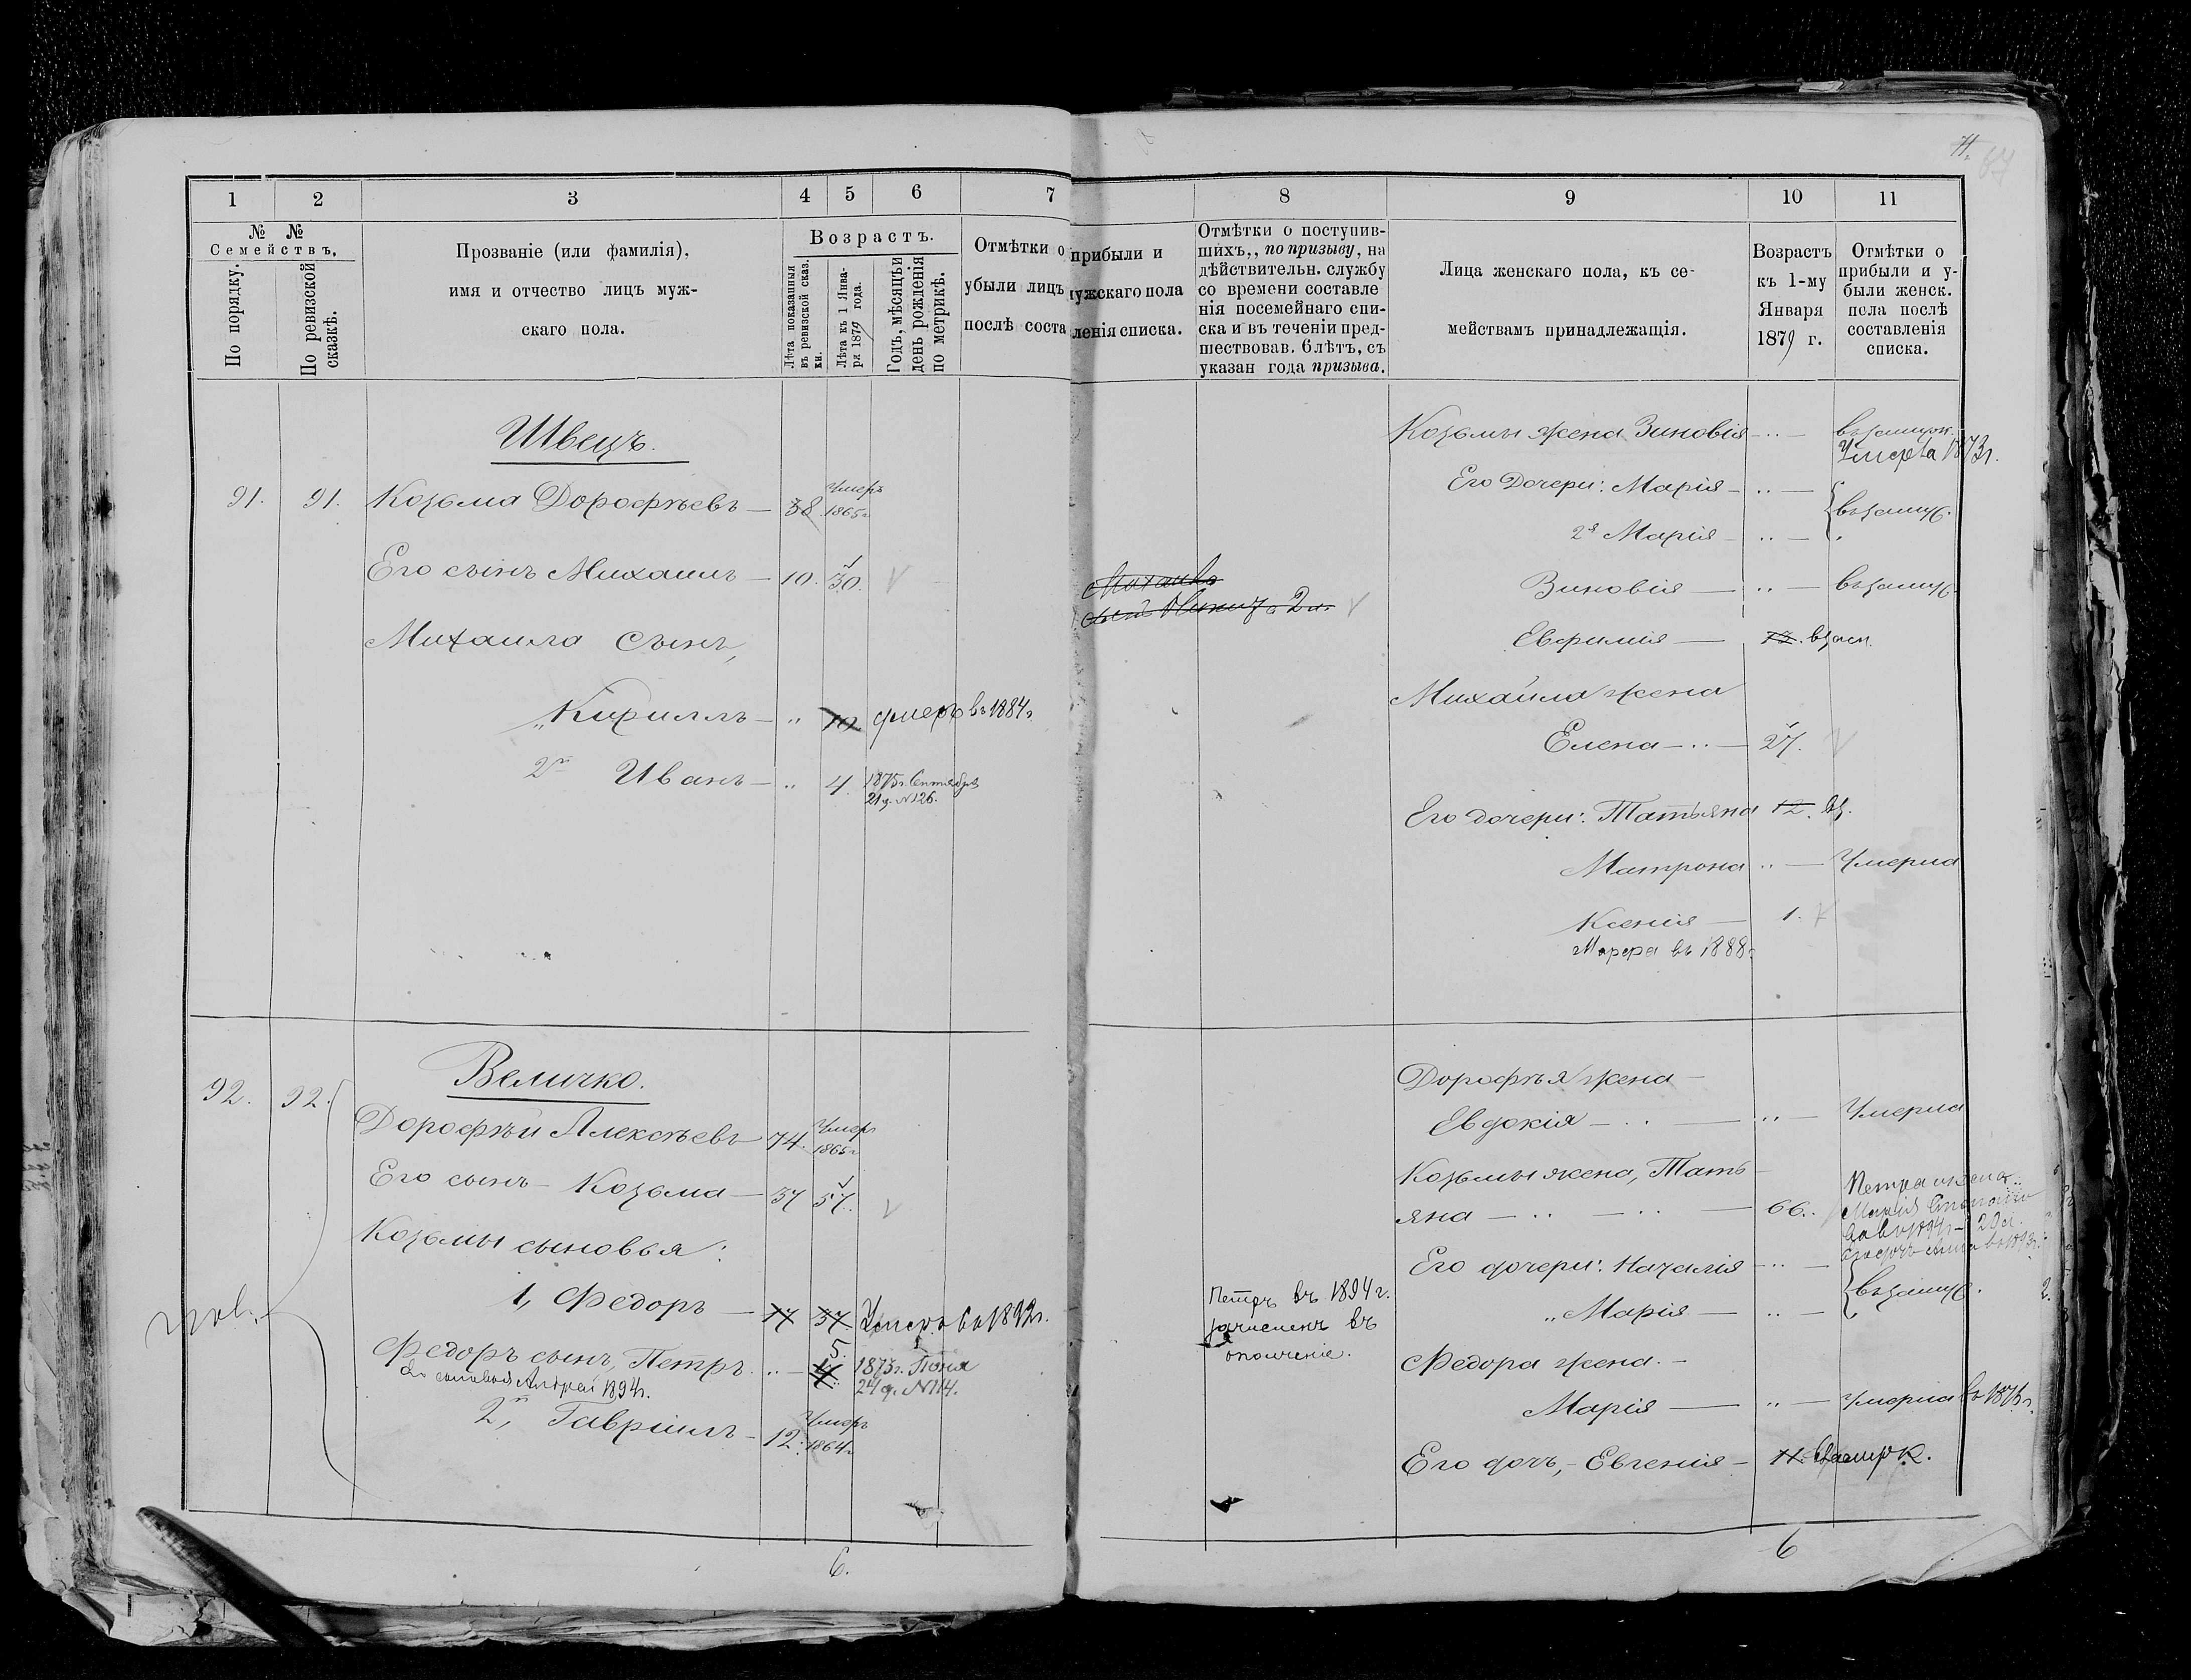 1 2 3 4 5 6 7
№ №
Семействъ.
По порядку.
По ревизской сказкѣ.
Прозваніе (или фамилія),
имя и отчество лицъ муж-
скаго пола.
Возрастъ.
Лѣта показанныя
въ ревизской сказ.
ки.
Лѣта къ 1 Янва-
ря 1879 года.
Годъ, мѣсяцъ и
день рожденія
по метрикѣ.
Отмѣтки о
убыли лицъ
послѣ соста
Швецъ.
91. 91. Козьма Дорофѣевъ — 38 Умеръ
1865г
Его сынъ Михаилъ — 10. 30.
Михаила сынъ,
„Кириллъ — „ 10 умеръ въ 1884г.
2й Иванъ — „ 4. 1875г. Сентября
21 д. №126.
Величко.
92. 92.
Дорофѣй Алексѣевъ 74. Умеръ
1865г
Его сынъ — Козьма — 37 57.
Козьмы сыновья:
1, Федоръ — 17 37. Умеръ въ 1892г.
5.
Федоръ сынъ, Петръ „ — 4. 1873г. Іюня
24 д. №114.
сыновья Андрей 1894г.
2й, Гавріилъ — 12. Умеръ
1864г
6.
11.
8 9 10 11
прибыли и
мужскаго пола
ленія списка.
Отмѣтки о поступив-
шихъ,, по призыву, на
дѣйствительн. службу
со времени составле
нія посемейнаго спи-
ска и въ теченіи пред-
шествовав. 6лѣтъ, съ
указан года призыва.
Лица женскаго пола, къ се-
мействамъ принадлежащія.
Возрастъ
къ 1-му
Января
1879 г.
Отмѣтки о
прибыли и у-
были женск.
пола послѣ
составленія
списка.
Козьмы жена Зиновія — „ — въ замуж.
Умерла 1873г.
Его Дочери: Марія — „ —
въ замуж.
2я Марія — „ —
Михаилъ
сынъ 2 л.
Зиновія — „ — въ замуж.
Евфимія — 12. въ зам.
Михаила жена
Елена — „ — 27.
Его дочери: Татьяна 12. вз.
Матрона „ — Умерла
Ксенія — 1.
Марфа въ 1888г
Дорофѣя жена —
Евдокія — „ — „ — Умерла
Козьмы жена, Тать-
яна — „ — „ — 66.
Петра жена
Марія
1894г — 20 л.
Его дочери: Наталія — „ —
въ замуж.
„ Марія — „ —
Петръ въ 1894г.
зачисленъ въ
ополченіе.
Федора жена. —
Марія — „ — Умерла въ 1875г.
Его дочь, — Евгенія — 11. въ замуж.
6